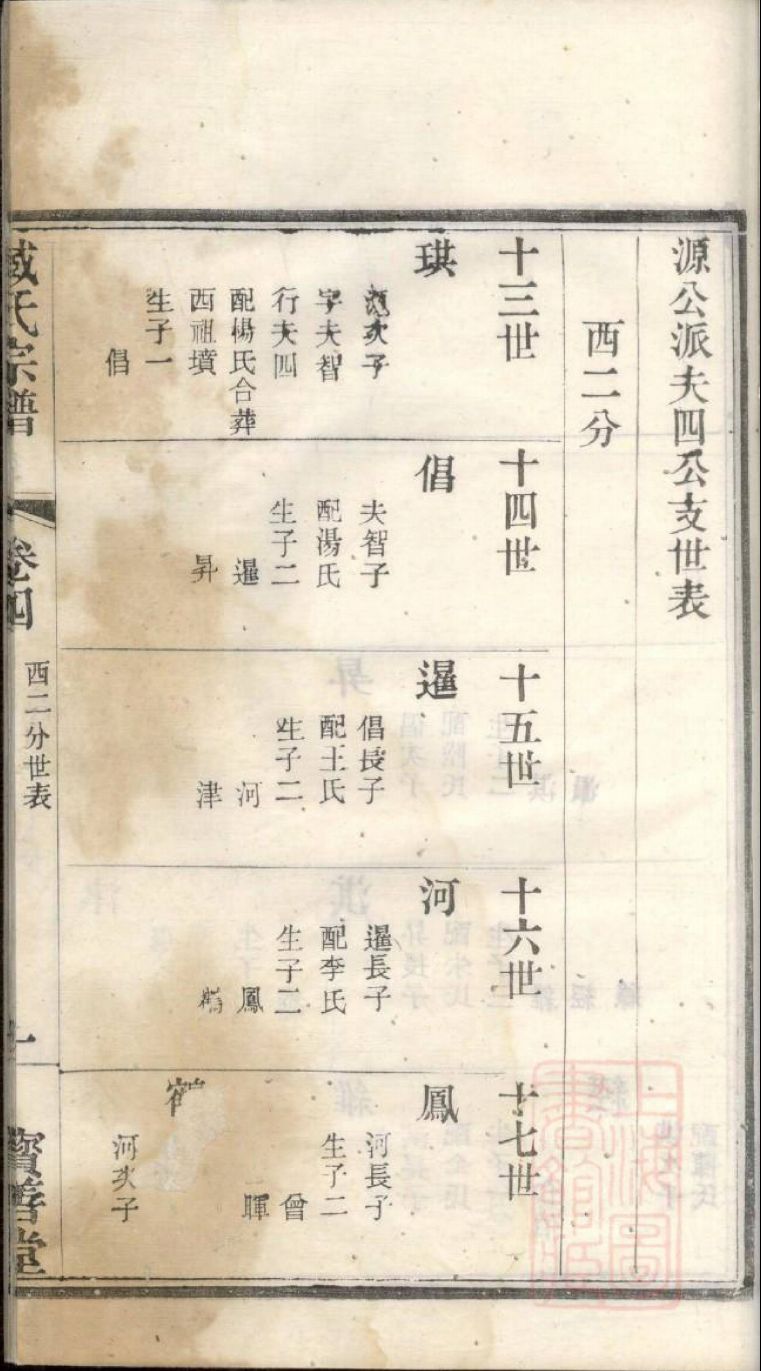 源公派夫四公支世表
西二分
十三世
琪
次子
字夫智
行夫四
配楊氏合葬
西祖墳
生子一
倡
十四世
倡
夫智子
配湯氏
生子二
暹
昇
十五世
暹
倡長子
配王氏
生子二
河
津
十六世
河
暹長子
配李氏
生子二
鳳
十七世
鳳
河長子
生子二
曾
暉
河次子
臧氏宗譜
卷四
西二分世表
一
寶善堂
上海圖書館藏